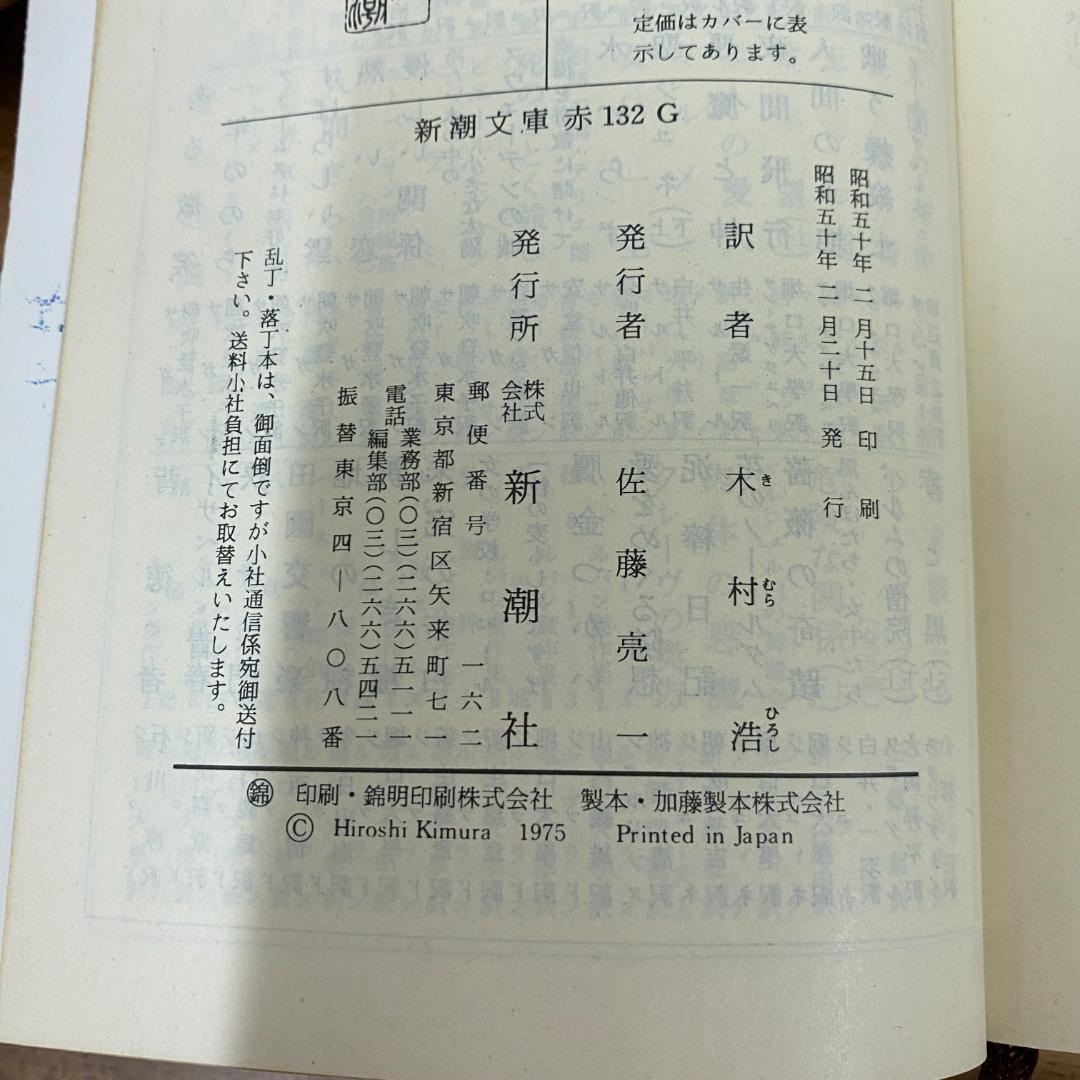 潮
定価はカバーに表
示してあります。
新潮文庫 赤132 G
昭和五十年 二月十五日 印刷
昭和五十年 二月二十日 発行
訳者 木村浩
き むら ひろし
発行者 佐藤亮一
発行所 株式会社 新潮社
郵便番号 一六二
東京都新宿区矢来町七一
電話 業務部(〇三)(二六六)五一一一
編集部(〇三)(二六六)五四一一
振替東京四―八〇八番
乱丁・落丁本は、御面倒ですが小社通信係宛御送付
下さい。送料小社負担にてお取替えいたします。
錦 印刷・錦明印刷株式会社 製本・加藤製本株式会社
© Hiroshi Kimura 1975 Printed in Japan